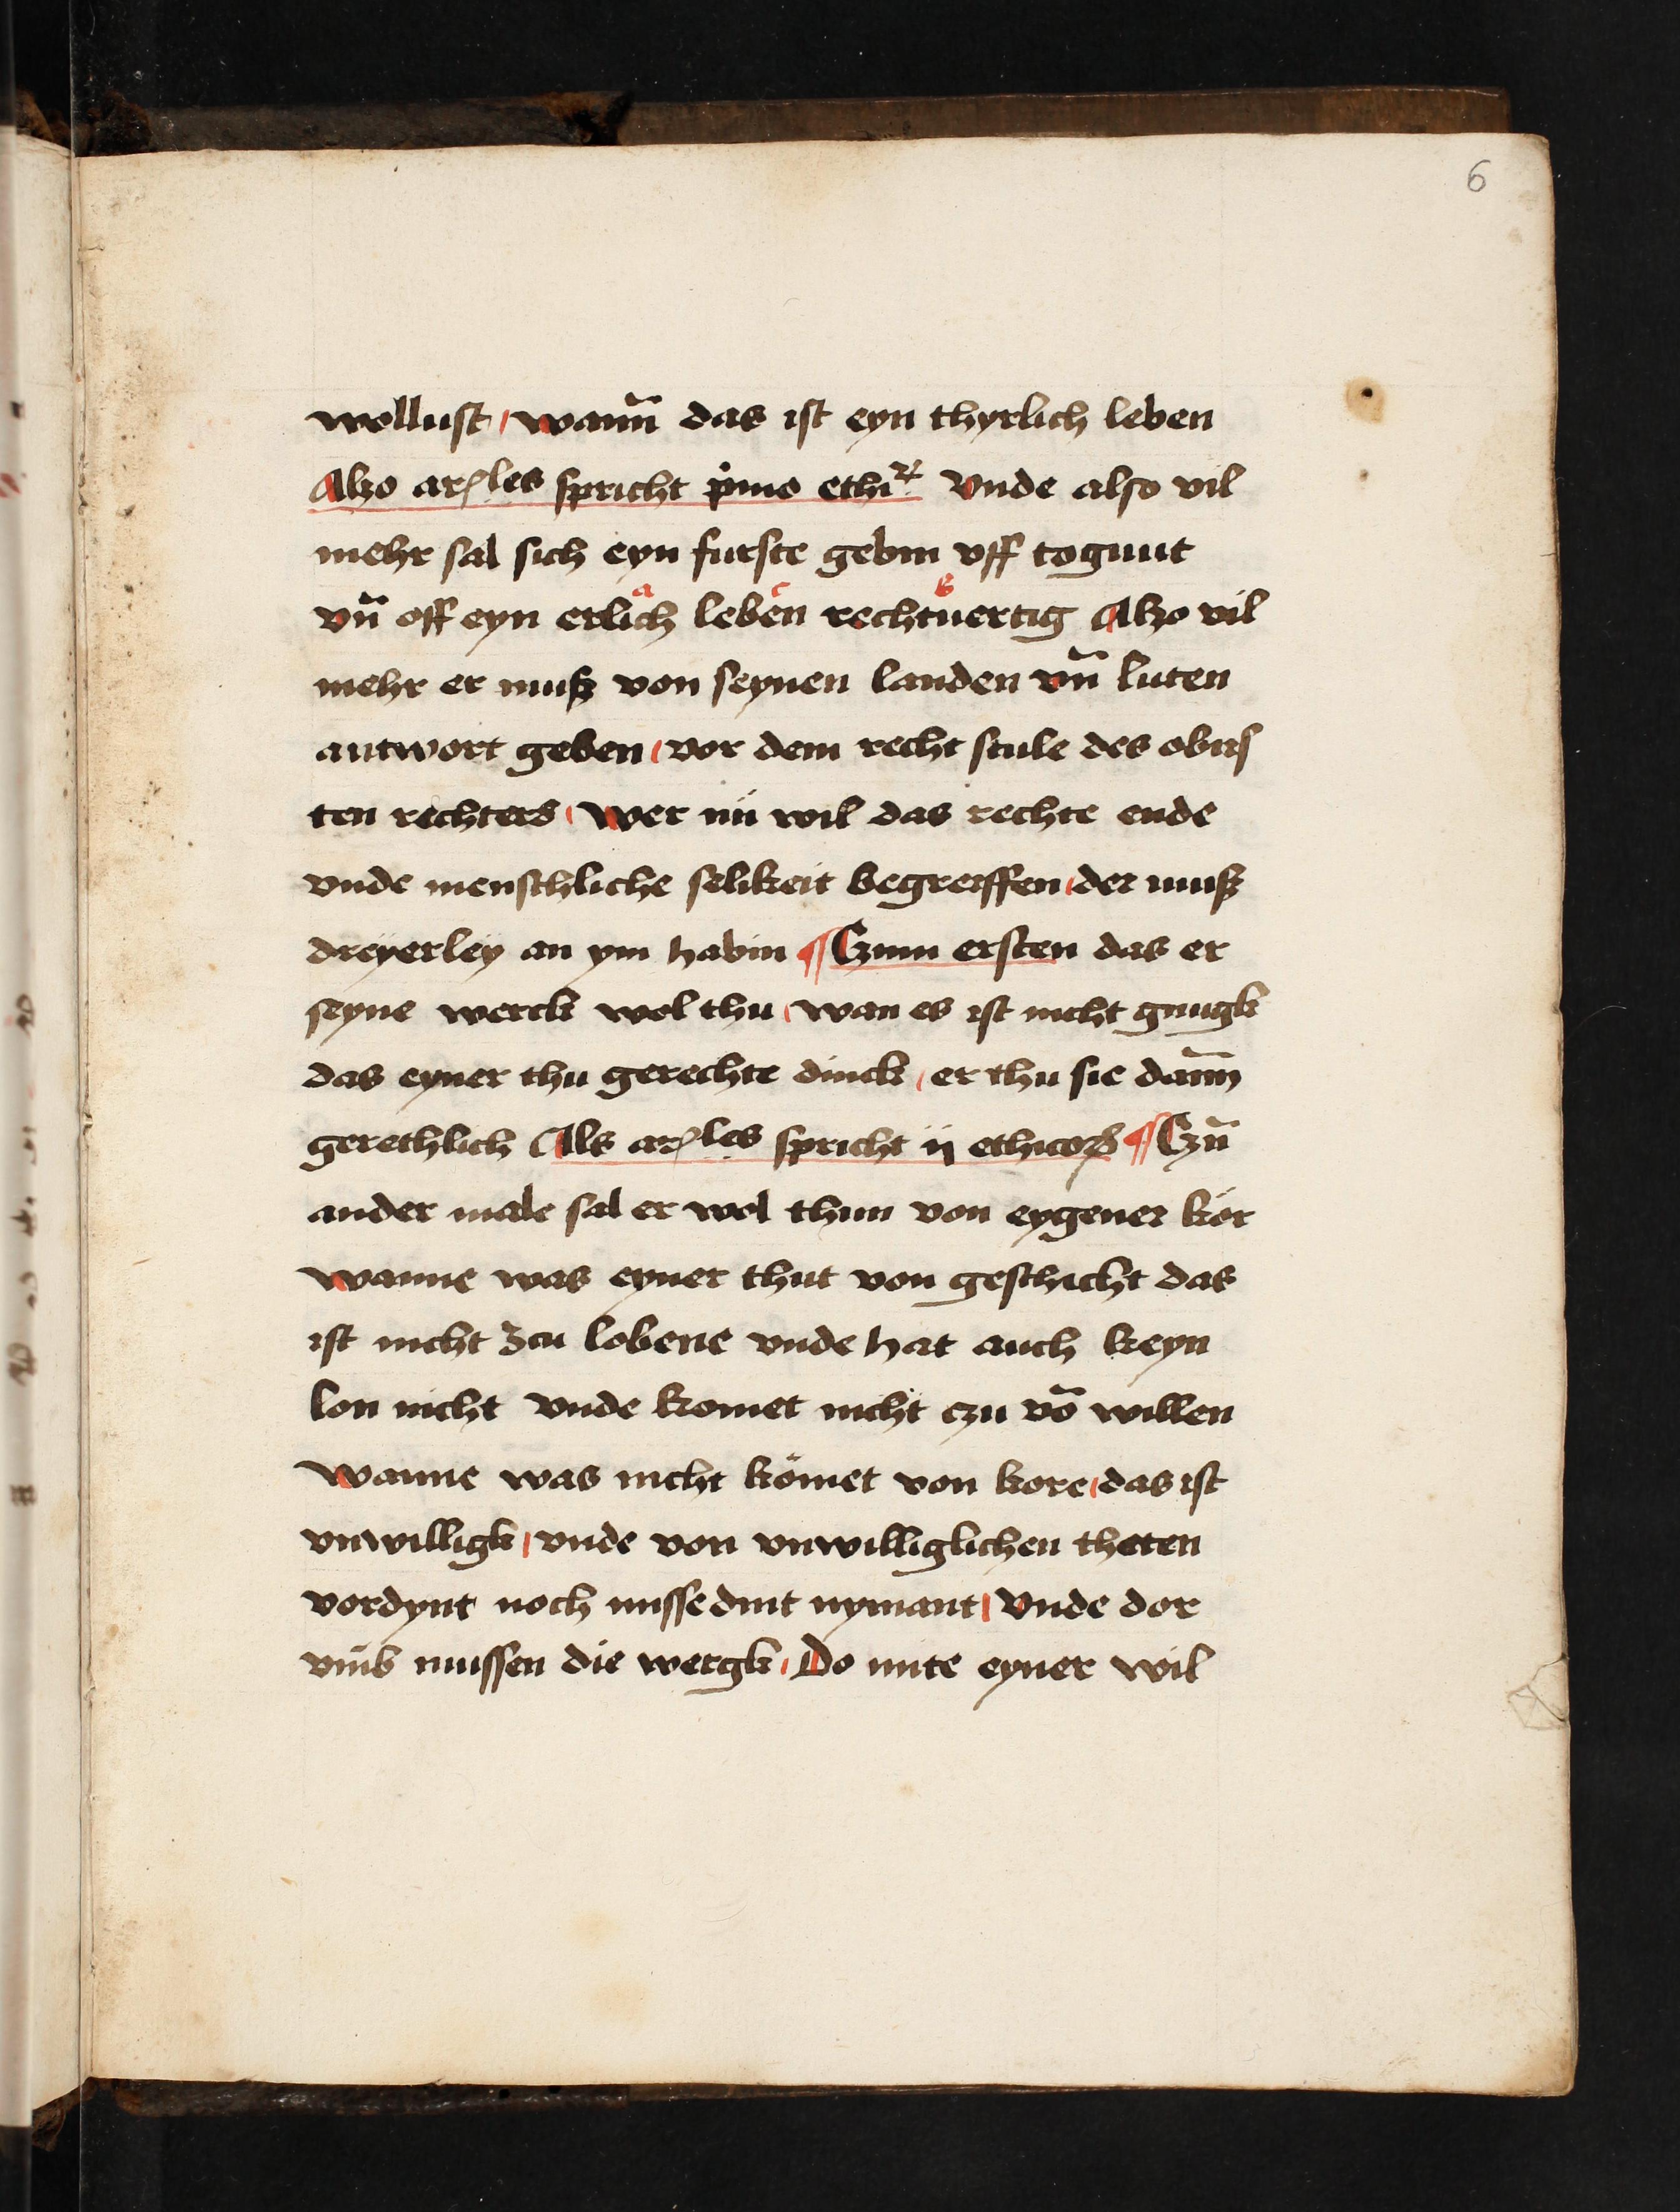 6
wollust / wan̄n das ist eyn thyrlich leben
Alzo ar̄les spricht p̊mo ethiꝝ Vnde also vil
mehr sal sich eyn furste gebin vff togunt
vn̄ off eyn erlich leben rechtuertig Alzo vil
a c b
mehr er muß von seynen landen vn̄ luten
antwort geben / vor dem recht stule des obirs
ten rechters / Wer nü wil das rechte ende
vnde menschliche selikeit begreiffen / der muß
dreyerley an ym habin ¶ Czum ersten das er
seyne werck wol thu / wan es ist nicht gnugk
das eyner thu gerechte dinck / er thu sie dan̄n
gerethlich Als ar̄les spricht ij ethicoꝝ ¶ Czū
ander male sal er wol thun von eygener kör
Wanne was eyner thut von geschicht das
ist nicht zcu lobene vnde hat auch keyn
lon nicht vnde komet nicht czu vō willen
Wanne was nicht kömet von kore / das ist
vnwilligk / vnde von vnwilliglichen theten
vordynt noch missedint nymant / Vnde dor
vmb mussen die wergk / Do mite eyner wil